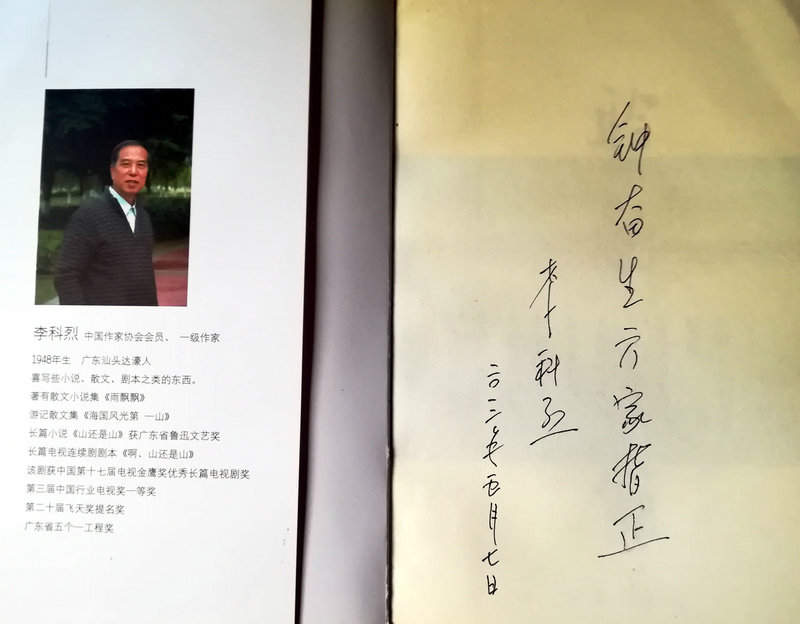 李科烈 中国作家协会会员、一级作家
1948年生 广东汕头达濠人
喜写些小说、散文、剧本之类的东西。
著有散文小说集《雨飘飘》
游记散文集《海国风光第一山》
长篇小说《山还是山》获广东省鲁迅文艺奖
长篇电视连续剧剧本《啊、山还是山》
该剧获中国第十七届电视金鹰奖优秀长篇电视剧奖
第三届中国行业电视奖一等奖
第二十届飞天奖提名奖
广东省五个一工程奖
钟奋生方家指正
李科烈
年五月七日